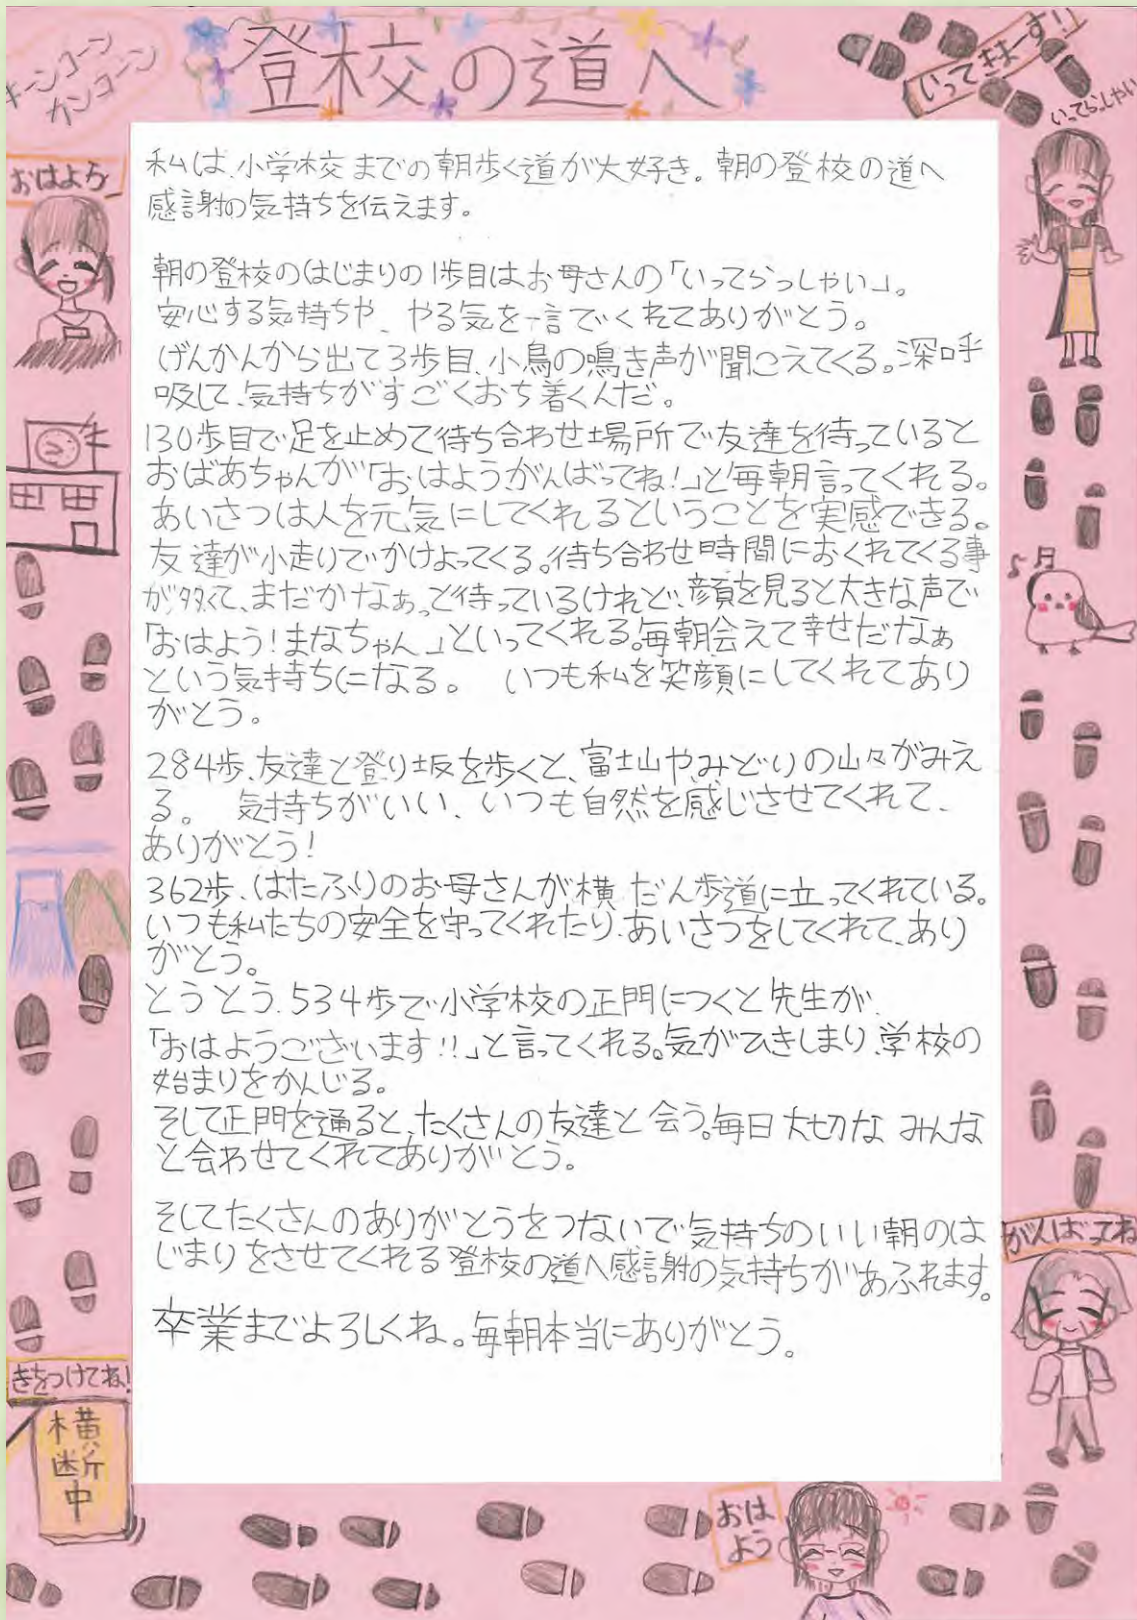 キーンコーン
カンコーン
登校の道へ
いってきまーす!!
いってらっしゃい
おはよう
私は、小学校までの朝歩く道が大好き。朝の登校の道へ
感謝の気持ちを伝えます。
朝の登校のはじまりの1歩目はお母さんの「いってらっしゃい」。
安心する気持ちや、やる気を一言でくれてありがとう。
げんかんから出て3歩目、小鳥の鳴き声が聞こえてくる。深呼
吸して、気持ちがすごくおち着くんだ。
130歩目で足を止めて待ち合わせ場所で友達を待っていると
おばあちゃんが「おはようがんばってね!」と毎朝言ってくれる。
あいさつは人を元気にしてくれるということを実感できる。
友達が小走りでかけよってくる。待ち合わせ時間におくれてくる事
が多くて、まだかなぁっと待っているけれど、顔を見ると大きな声で
「おはよう!まなちゃん」といってくれる。毎朝会えて幸せだなぁ
という気持ちになる。 いつも私を笑顔にしてくれてあり
がとう。
284歩、友達と登り坂を歩くと、富士山や、みどりの山々がみえ
る。 気持ちがいい、いつも自然を感じさせてくれて、
ありがとう!
362歩、はたふりのお母さんが横だん歩道に立ってくれている。
いつも私たちの安全を守ってくれたり、あいさつをしてくれて、あり
がとう。
とうとう、534歩で小学校の正門につくと先生が、
「おはようございます!!」と言ってくれる。気がひきしまり、学校の
始まりをかんじる。
そして正門を通ると、たくさんの友達と会う。毎日大切なみんな
と会わせてくれてありがとう。
そしてたくさんのありがとうをつないで気持ちのいい朝のは
じまりをさせてくれる登校の道へ感謝の気持ちがあふれます。
卒業までよろしくね。毎朝本当にありがとう。
がんばってね
きをつけてね!
横
断
中
おは
よう